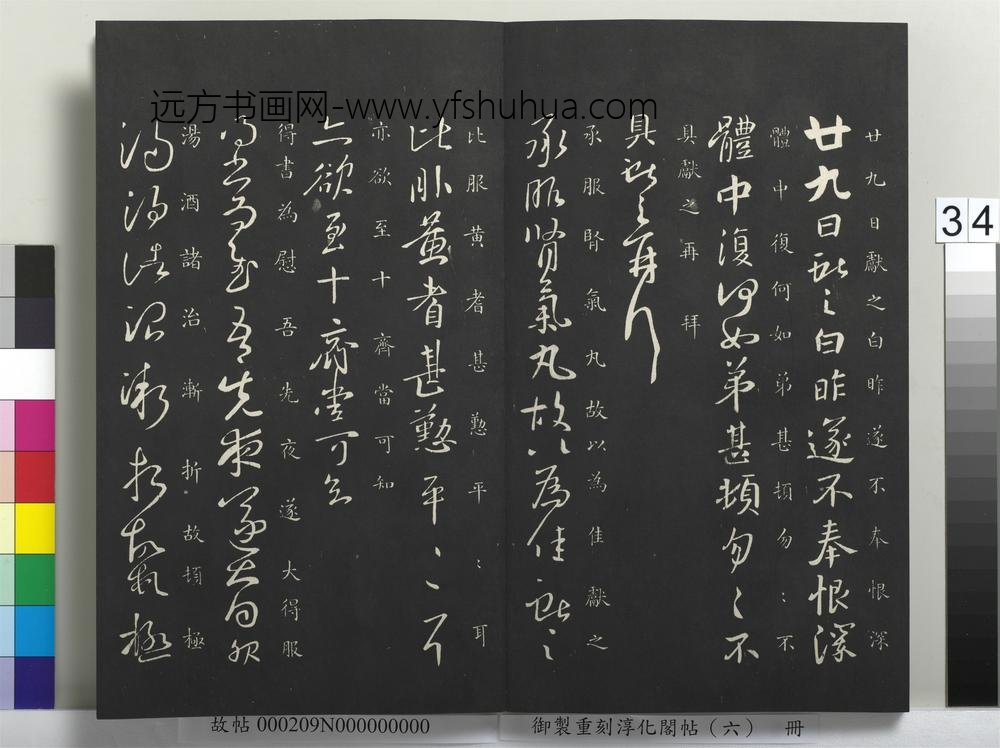 远方书画网-www.yfshuhua.com
廿九日獻之白昨遂不奉恨深
廿九日獻之白昨遂不奉恨深
體中復何如弟甚頓勿:不
體中復何如弟甚頓勿〻不
具獻之再拜
具獻之再拜
承服腎氣丸故以為佳獻之
承服腎氣丸故以為佳獻之
比服黄耆甚懃平:耳
比服黄耆甚懃平〻耳
亦欲至十齊當可知
亦欲至十齊當可知
得書為慰吾先夜遂大得服
得書為慰吾先夜遂大得服
湯酒諸治漸折故頓極
湯酒諸治漸折故頓極
34
故帖000209N000000000
御製重刻淳化閣帖(六) 冊